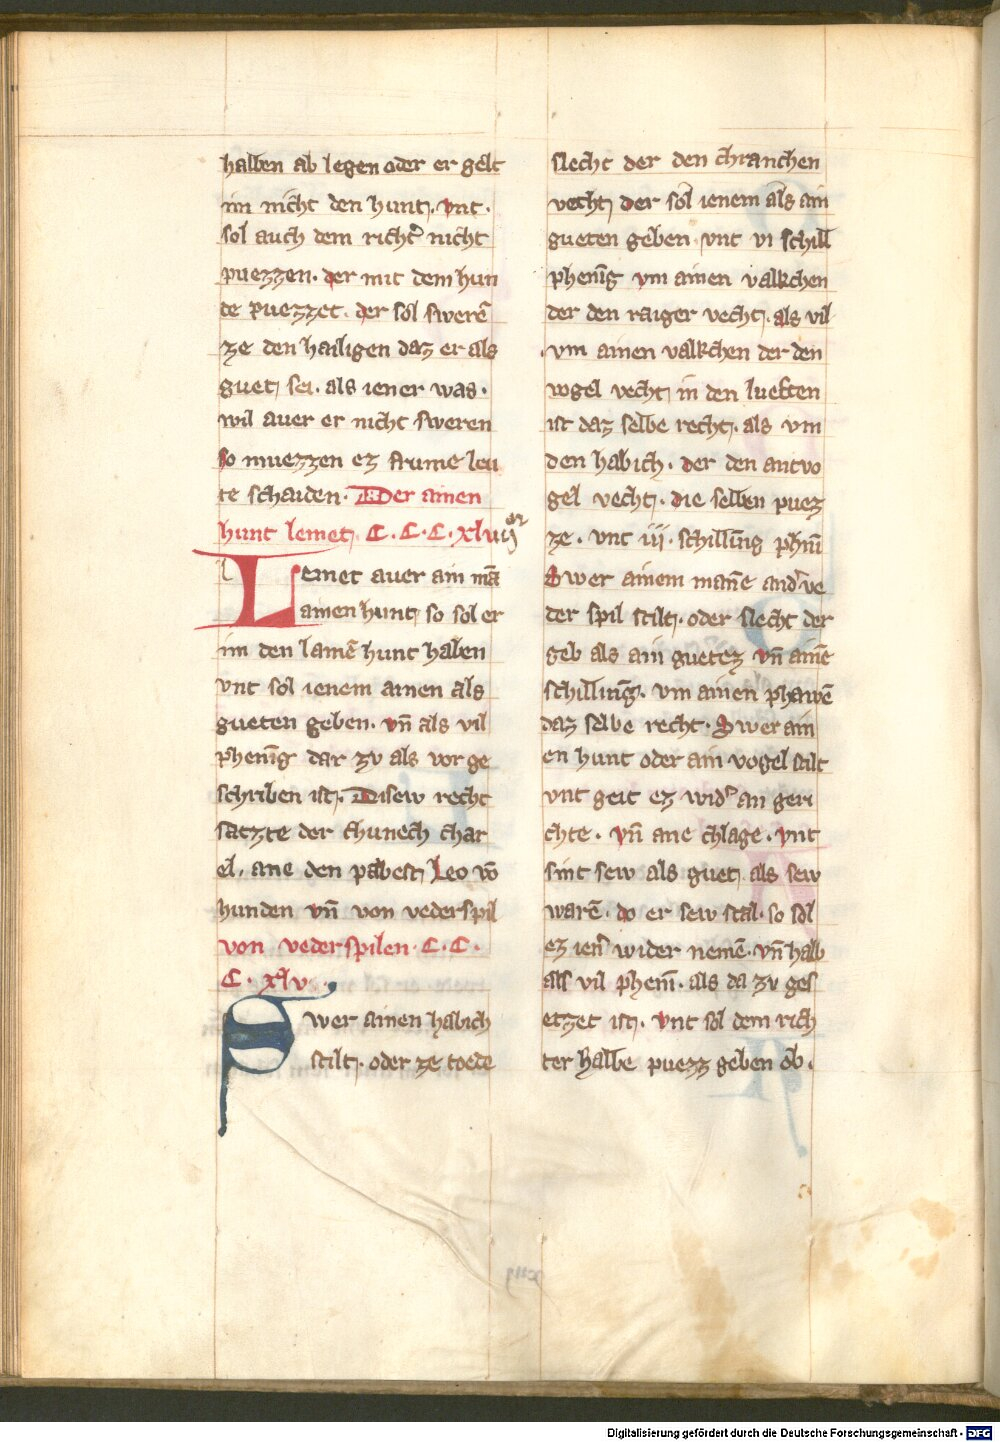 halben ab legen oder er gelt
im nicht den hunt. vnt.
sol auch dem richt̾ nicht
puezzen. der mit dem hun
de puezzet. der sol swerē
ze den hailigen daz er als
guet sei. als iener was.
wil auer er nicht sweren
so muezzen ez frume leu
te schaiden. Der ainen
hunt lemet. C. C. C. xlviiij
Lemet auer ain mā
ainen hunt so sol er
im den lamē hunt haben
vnt sol ienem ainen als
gueten geben. vn̄ als vil
phenīg dar zv als vor ge
schriben ist. Disew recht
satzte der chunech char
el. ane den pabest Leo vō
hunden vn̄ von vederspil
von vederspilen. C. C.
C. xlv.
Swer ainen habich
stilt. oder ze toede
slecht der den chranchen
vecht. der sol ienem als ain
gueten geben vnt vi schill
phenīg vm ainen valkchen
der den raiger vecht. als vil
vm ainen valkchen der den
vogel vecht in den lueften
ist daz selbe recht. als vm
den habich. der den antvo
gel vecht. die selben puez
ze. vnt iij. schilling phn̄i
Swer ainem manne and̾ ve
der spil stilt. oder slecht der
geb als ain guetez vn̄ ainē
schillinḡ. vm ainen phawē
daz selbe recht. Swer ain
en hunt oder ain vogel stilt
vnt geit ez wid̾ an geri
chte. vn̄ ane chlage. vnt
sint sew als guet. als sew
warē. do er sew stal. so sol
ez ien̾ wider nemē. vn̄ halb
als vil phenī. als da zv ges
etzet ist. vnt sol dem rich
ter halbe puezz geben ob.
Digitalisierung gefördert durch die Deutsche Forschungsgemeinschaft - DFG